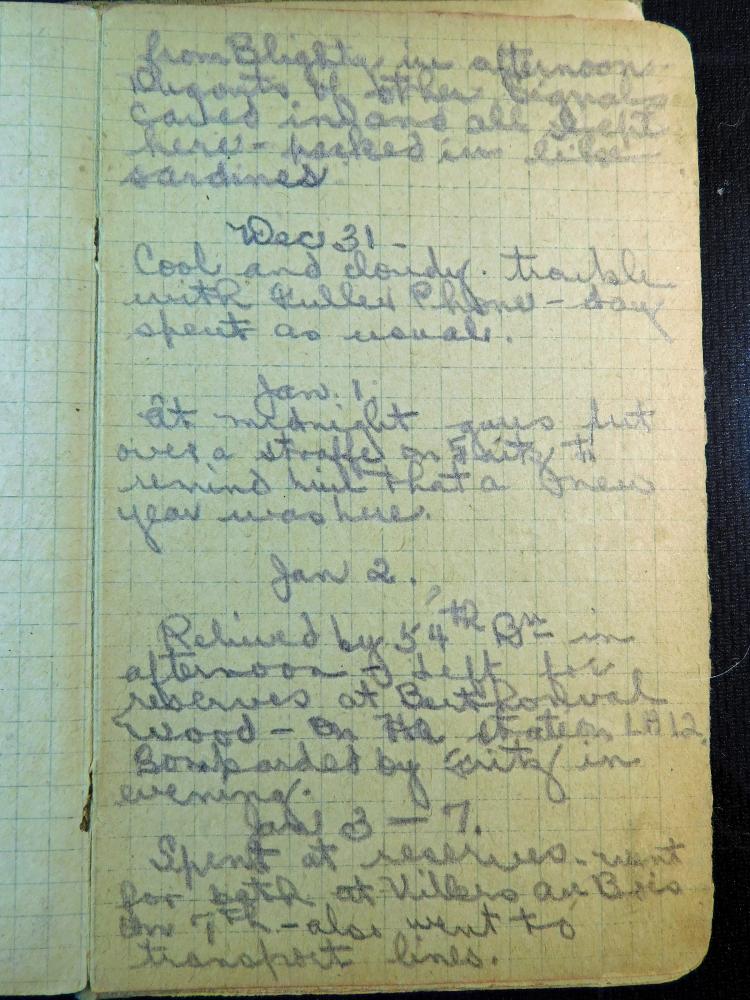 from Blighty in afternoon.
Dugouts of other signals
caved in and all slept
here - packed in like
sardines
Dec 31 -
Cool and cloudy. trouble
with Fuller Phone - day
spent as usual.
Jan. 1.
At midnight guns put
over a strafe on Fritz to
remind him that a new
year was here.
Jan 2.
Relieved by 54th Bn in
afternoon & left for
reserves at Berthonval
Wood - On the station LA12.
Bombarded by Fritz in
evening.
Jan 3 - 7.
Spent at reserves. went
for bath at Villers au Bois
on 7th - also went to
transport lines.